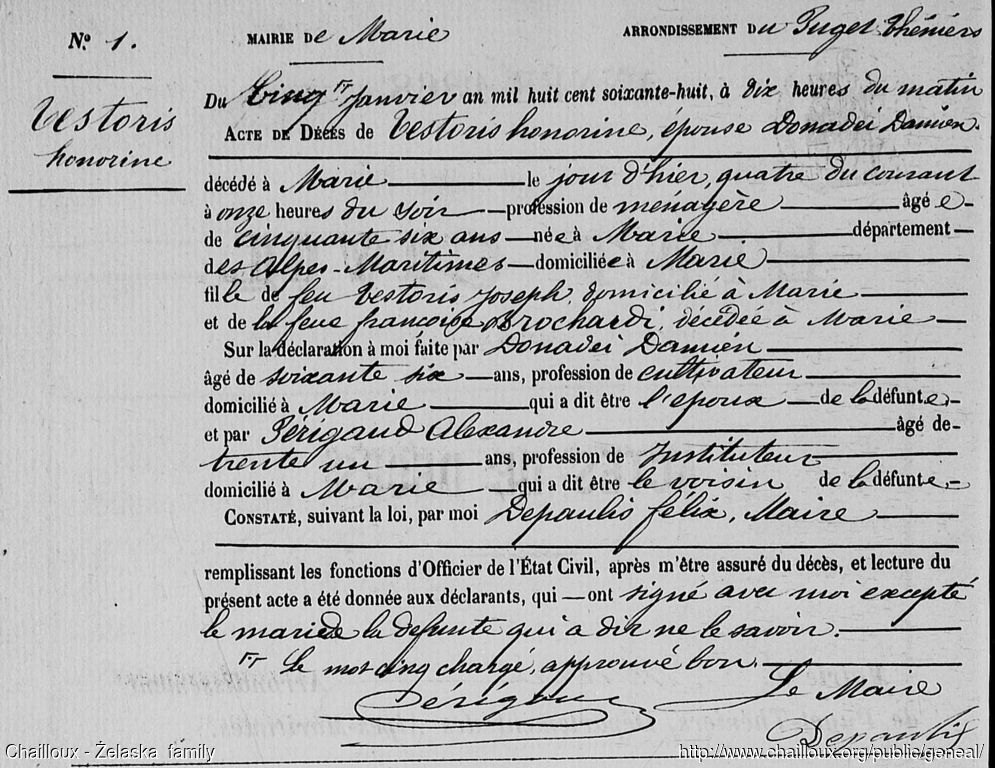 N.º 1. MAIRIE De Marie ARRONDISSEMENT Du Puget Théniers
Vestoris
honorine
Du Cinq Janvier an mil huit cent soixante-huit, à Dix heures du matin
ACTE DE DÉCÈS de Vestoris honorine, épouse Donadei Damien.
décédé à Marie le jour d'hier, quatre du courant
à onze heures du soir profession de ménagère âgée
de cinquante six ans née à Marie département
des Alpes-Maritimes domiciliée à Marie
fille de feu Vestoris Joseph, domicilié à Marie
et de la feue françoise Brochardi, décédée à Marie
Sur la déclaration à moi faite par Donadei Damien
âgé de soixante six ans, profession de cultivateur
domicilié à Marie qui a dit être l'époux de la défunte
et par Périgaud Alexandre âgé de
trente un ans, profession de Instituteur
domicilié à Marie qui a dit être le voisin de la défunte
CONSTATÉ, suivant la loi, par moi Depaulis félix, Maire
remplissant les fonctions d'Officier de l'État Civil, après m'être assuré du décès, et lecture du
présent acte a été donnée aux déclarants, qui ont signé avec moi excepté
le mari de la defunte qui a dit ne le savoir.
Le mot cinq chargé, approuvé bon
Le Maire
Périgau
Depaulis
Chailloux - Żelaska family http://www.chailloux.org/public/geneal/